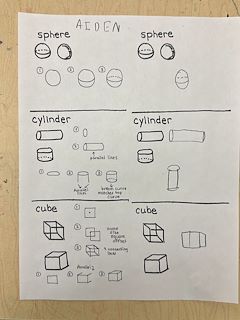 AIDEN
sphere
sphere
1
2
3
cylinder
cylinder
1
2
parallel lines
1
2
3
parallel
lines
bottom curve
matches top
curve
cube
cube
1
2
square
offset
3
connecting
lines
Parallel
1
2
3